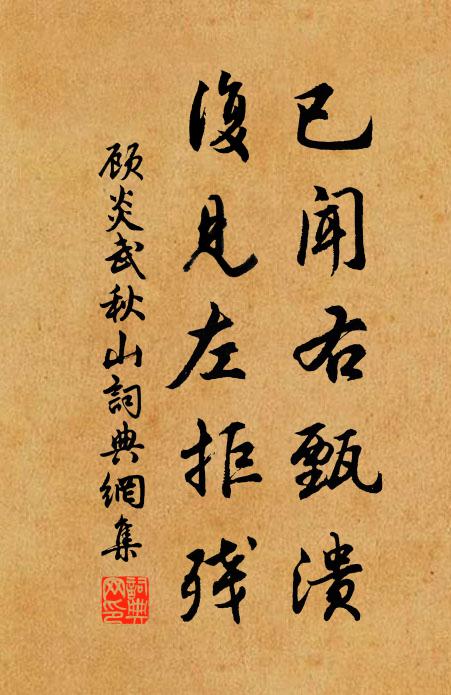 已闻右甄溃
復见左拒残
顾炎武秋山詞典網集
詞典网印